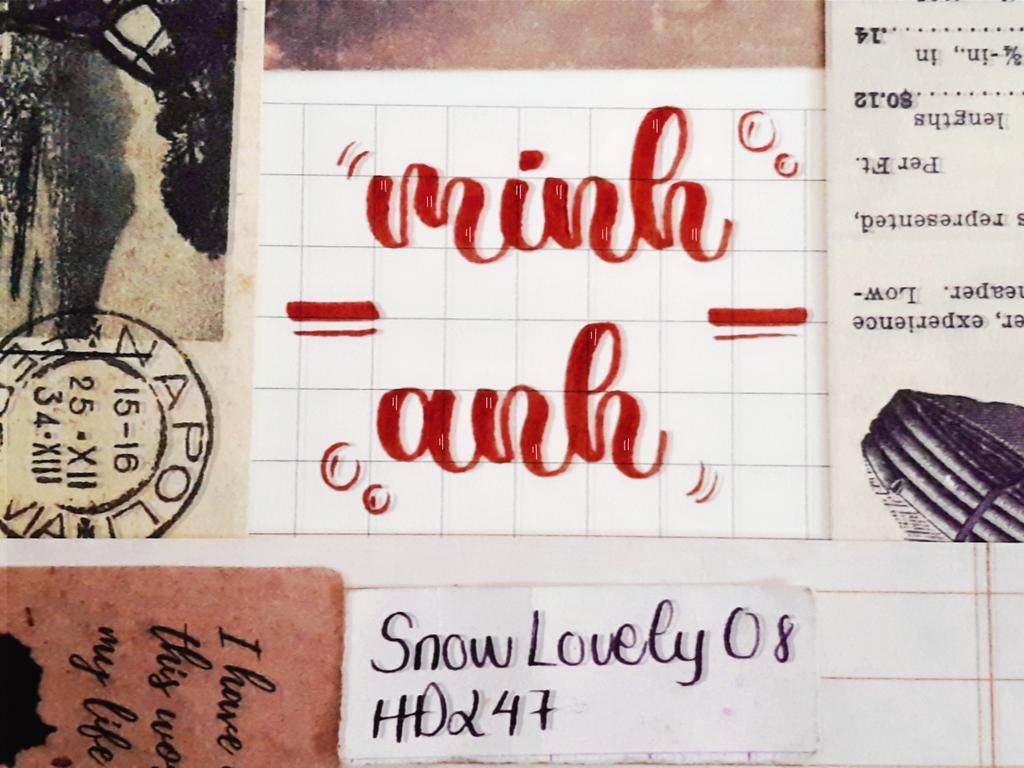 minh
anh
Snow Lovely 08
HD247
NAPOLI
15-16
25 · XII
34 · XII
I have
this wo
my life
.14
¾-in., in
$0.12
lengths
Per Ft.
s represented,
eaper. Low-
er, experience